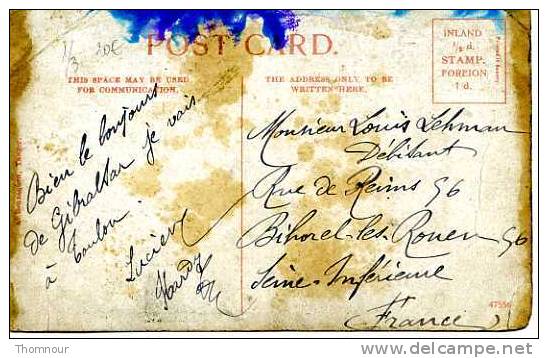 1/3 20€
POST CARD.
INLAND
1/2 d.
STAMP.
FOREIGN
1 d.
THIS SPACE MAY BE USED
FOR COMMUNICATION.
THE ADDRESS ONLY TO BE
WRITTEN HERE.
Bien le bonjour
de Gibraltar je vais
à Toulon
Lucien
Monsieur Louis Lehman
Débitant
Rue de Reims 56
Bihorel-les-Rouen 56
Seine-Inférieure
France
47556
Thomnour
www.delcampe.net